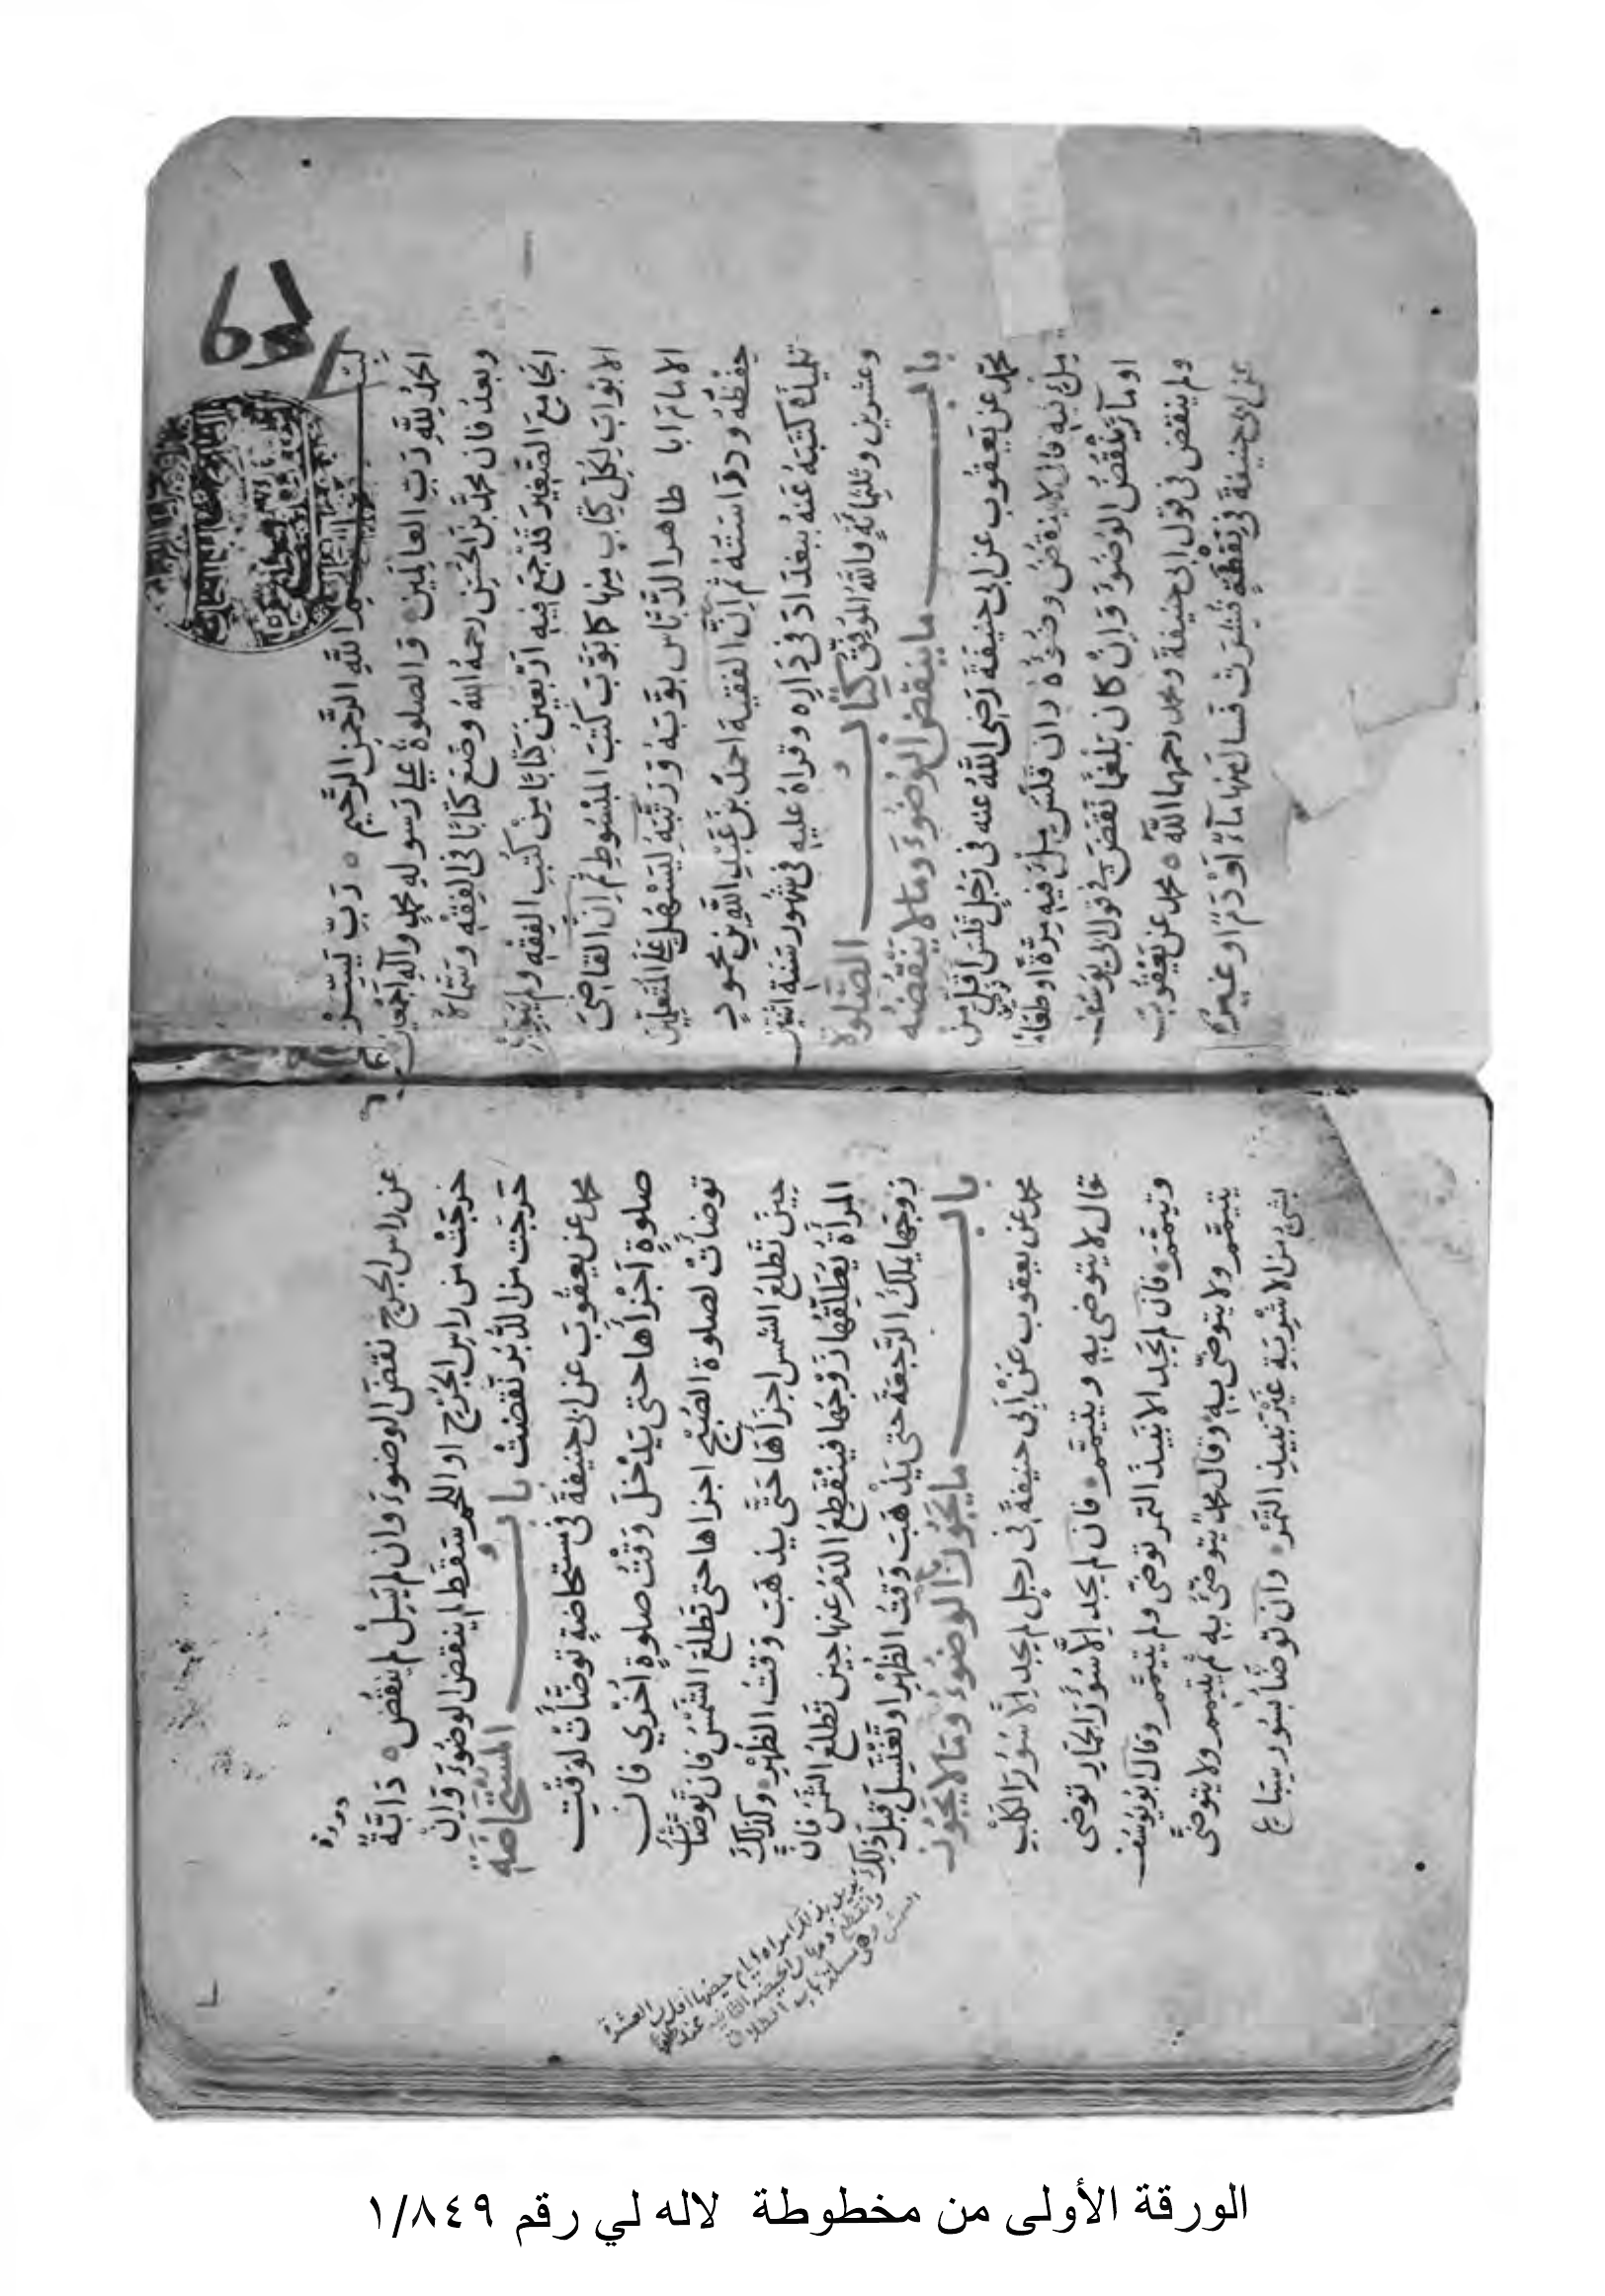 بسم الله الرحمن الرحيم ٥ رَبِّ يَسِّرْ
الحمدُ للّٰهِ رَبِّ العالمين والصلوةُ على رسوله محمدٍ وآله اجمعين
وبعدُ فان محمّدَ بنَ الحَسَنِ رحمهُ اللهُ وضَعَ كتابًا في الفِقْهِ وسَمَّاهُ
الجَامِعَ الصَّغِيرَ قد جَمَعَ فيه اَرْبَعِينَ كِتَابًا مِنْ كُتُبِ الفِقْهِ ولم يُبَوِّبْ
الابْوابَ لِكُلِّ كِتَابٍ مِنها كما بَوَّبَ كُتُبَ المَبْسُوطِ ثم اِنَّ القاضِىَ
الامامَ ابا طاهرا الدَّبَّاس بَوَّبَهُ وَرَتَّبَهُ لِيَسْهُلَ عَلى المُتَعَلِّمِينَ
حِفْظُهُ ودِرَاسَتُهُ ثم اِنَّ الفقيهَ احمدَ بنَ عَبْدِ اللهِ بنِ محمودٍ
تلميذَهُ كَتَبَهُ عَنهُ ببغدَادَ فى دَارِه وقراهُ عليهِ فى شُهور سَنَةِ اثنتين
وعشرين وثلثمائةٍ واللّٰهُ المُوَفِّقُ كِتَابُ الصَّلوةِ
باب ما ينقض الوضوءَ وما لا ينْقُضُه
محمّد عن يَعقوب عن ابى حنيفَةَ رَضى اللّٰهُ عنه فى رَجُلٍ قَلَسَ اَقلَّ من
مِلْءِ فيه قال لا ينقُضُ وضُوْءَهُ وان قَلَسَ مِلْءَ فيه مِرَّةً او طعَامًا
او ماءً نَقَضَ الوُضُوءَ وَاِنْ كان بَلْغَمًا نَقَضَ فى قول ابى يوسف
ولم ينقض فى قول ابى حنيفة ومحمد رحمهما اللّٰه ٥ محمد عن يَعْقُوبَ
عن ابى حنيفة فى نَفْطَةٍ قُشِرَتْ فسال منها ماءٌ اَوْ دَمٌ او غيرُهُ
عن راس الجرح نقضَ الوضوءَ وان لم يَسِلْ لم ينقُضْ ٥ دَابَّةٌ
دودة
خرجَتْ من راسِ الجُرْحِ او اللحم سَقَطَ لم ينقض الوضوءَ وَاِنْ
خَرَجَت من الدُّبُرِ نَقَضتْ بابُ المُسْتَحَاضَةِ
محمد عن يعقُوبَ عن ابى حنيفةَ فى مستحاضةٍ توضَّأَتْ لوَقْتِ
صلوةٍ اَجْزَأَها حتى يَدْخلَ وَقْتُ صلوةٍ اُخْرى فان
توضأَتْ لصلوة الصُبْحِ اجزاها حتى تَطْلُعَ الشَّمْسُ فان تَوَضَّأَت
حينَ تَطلعُ الشمس اجزَأهَا حَتّى يذهَبَ وَقتُ الظُهْرِ وكذلكَ
المَرأةُ يُطَلِّقُهَا زَوْجُها فينْقطِعُ الدَّمُ عنها حِينَ تَطلعُ الشمسُ فانّ
زَوْجَها يملكُ الرَّجعَةَ حتى يَذْهَبَ وَقتُ الظُهْرِ او تَغْتَسِلَ قبل ذلك
باب ما يَجُوزُ به الوضوءُ وما لا يجُوز
محمد عن يعقوب عَنْ اَبى حنيفة فى رجلٍ لم يجد اِلّا سُؤْرَ الكَلْبِ
قال لا يتوضى به ويتيمَّم فان لم يجد اِلّا سُؤْرَ الحِمَارِ توضى
وتيمّمَ فان لم يَجد الا نَبيذَ التمر توضى ولم يتيمَّم وقال ابو يوسف
يتيمَّم ولا يتوضّى به وقال محمدٌ يتوضّى به ثم يتيمم ولا يتوضَّى
بشئٍ من الاشْرِبةِ غَيْرَ نَبيذِ التَّمْرِ وان توضَّأ بسُؤر سِبَاعِ
الورقة الأولى من مخطوطة لاله لي رقم ١/٨٤٩